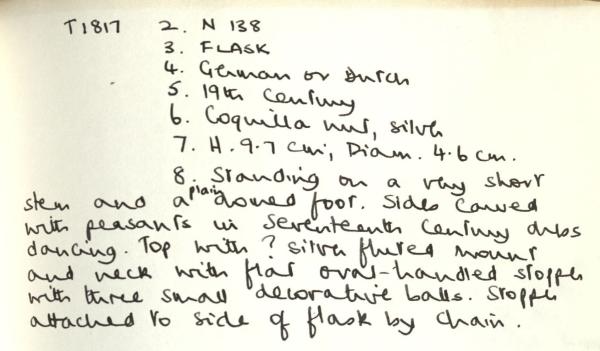 T1817 2. N 138
3. FLASK
4. German or Dutch
5. 19th Century
6. Coquilla nut, silver
7. H. 9.7 cm, Diam. 4.6 cm.
8. Standing on a very short
stem and a plain domed foot. Sides carved
with peasants in seventeenth century dress
dancing. Top with ? silver fluted mount
and neck with flat oval-handled stopper
with three small decorative balls. Stopper
attached to side of flask by chain.